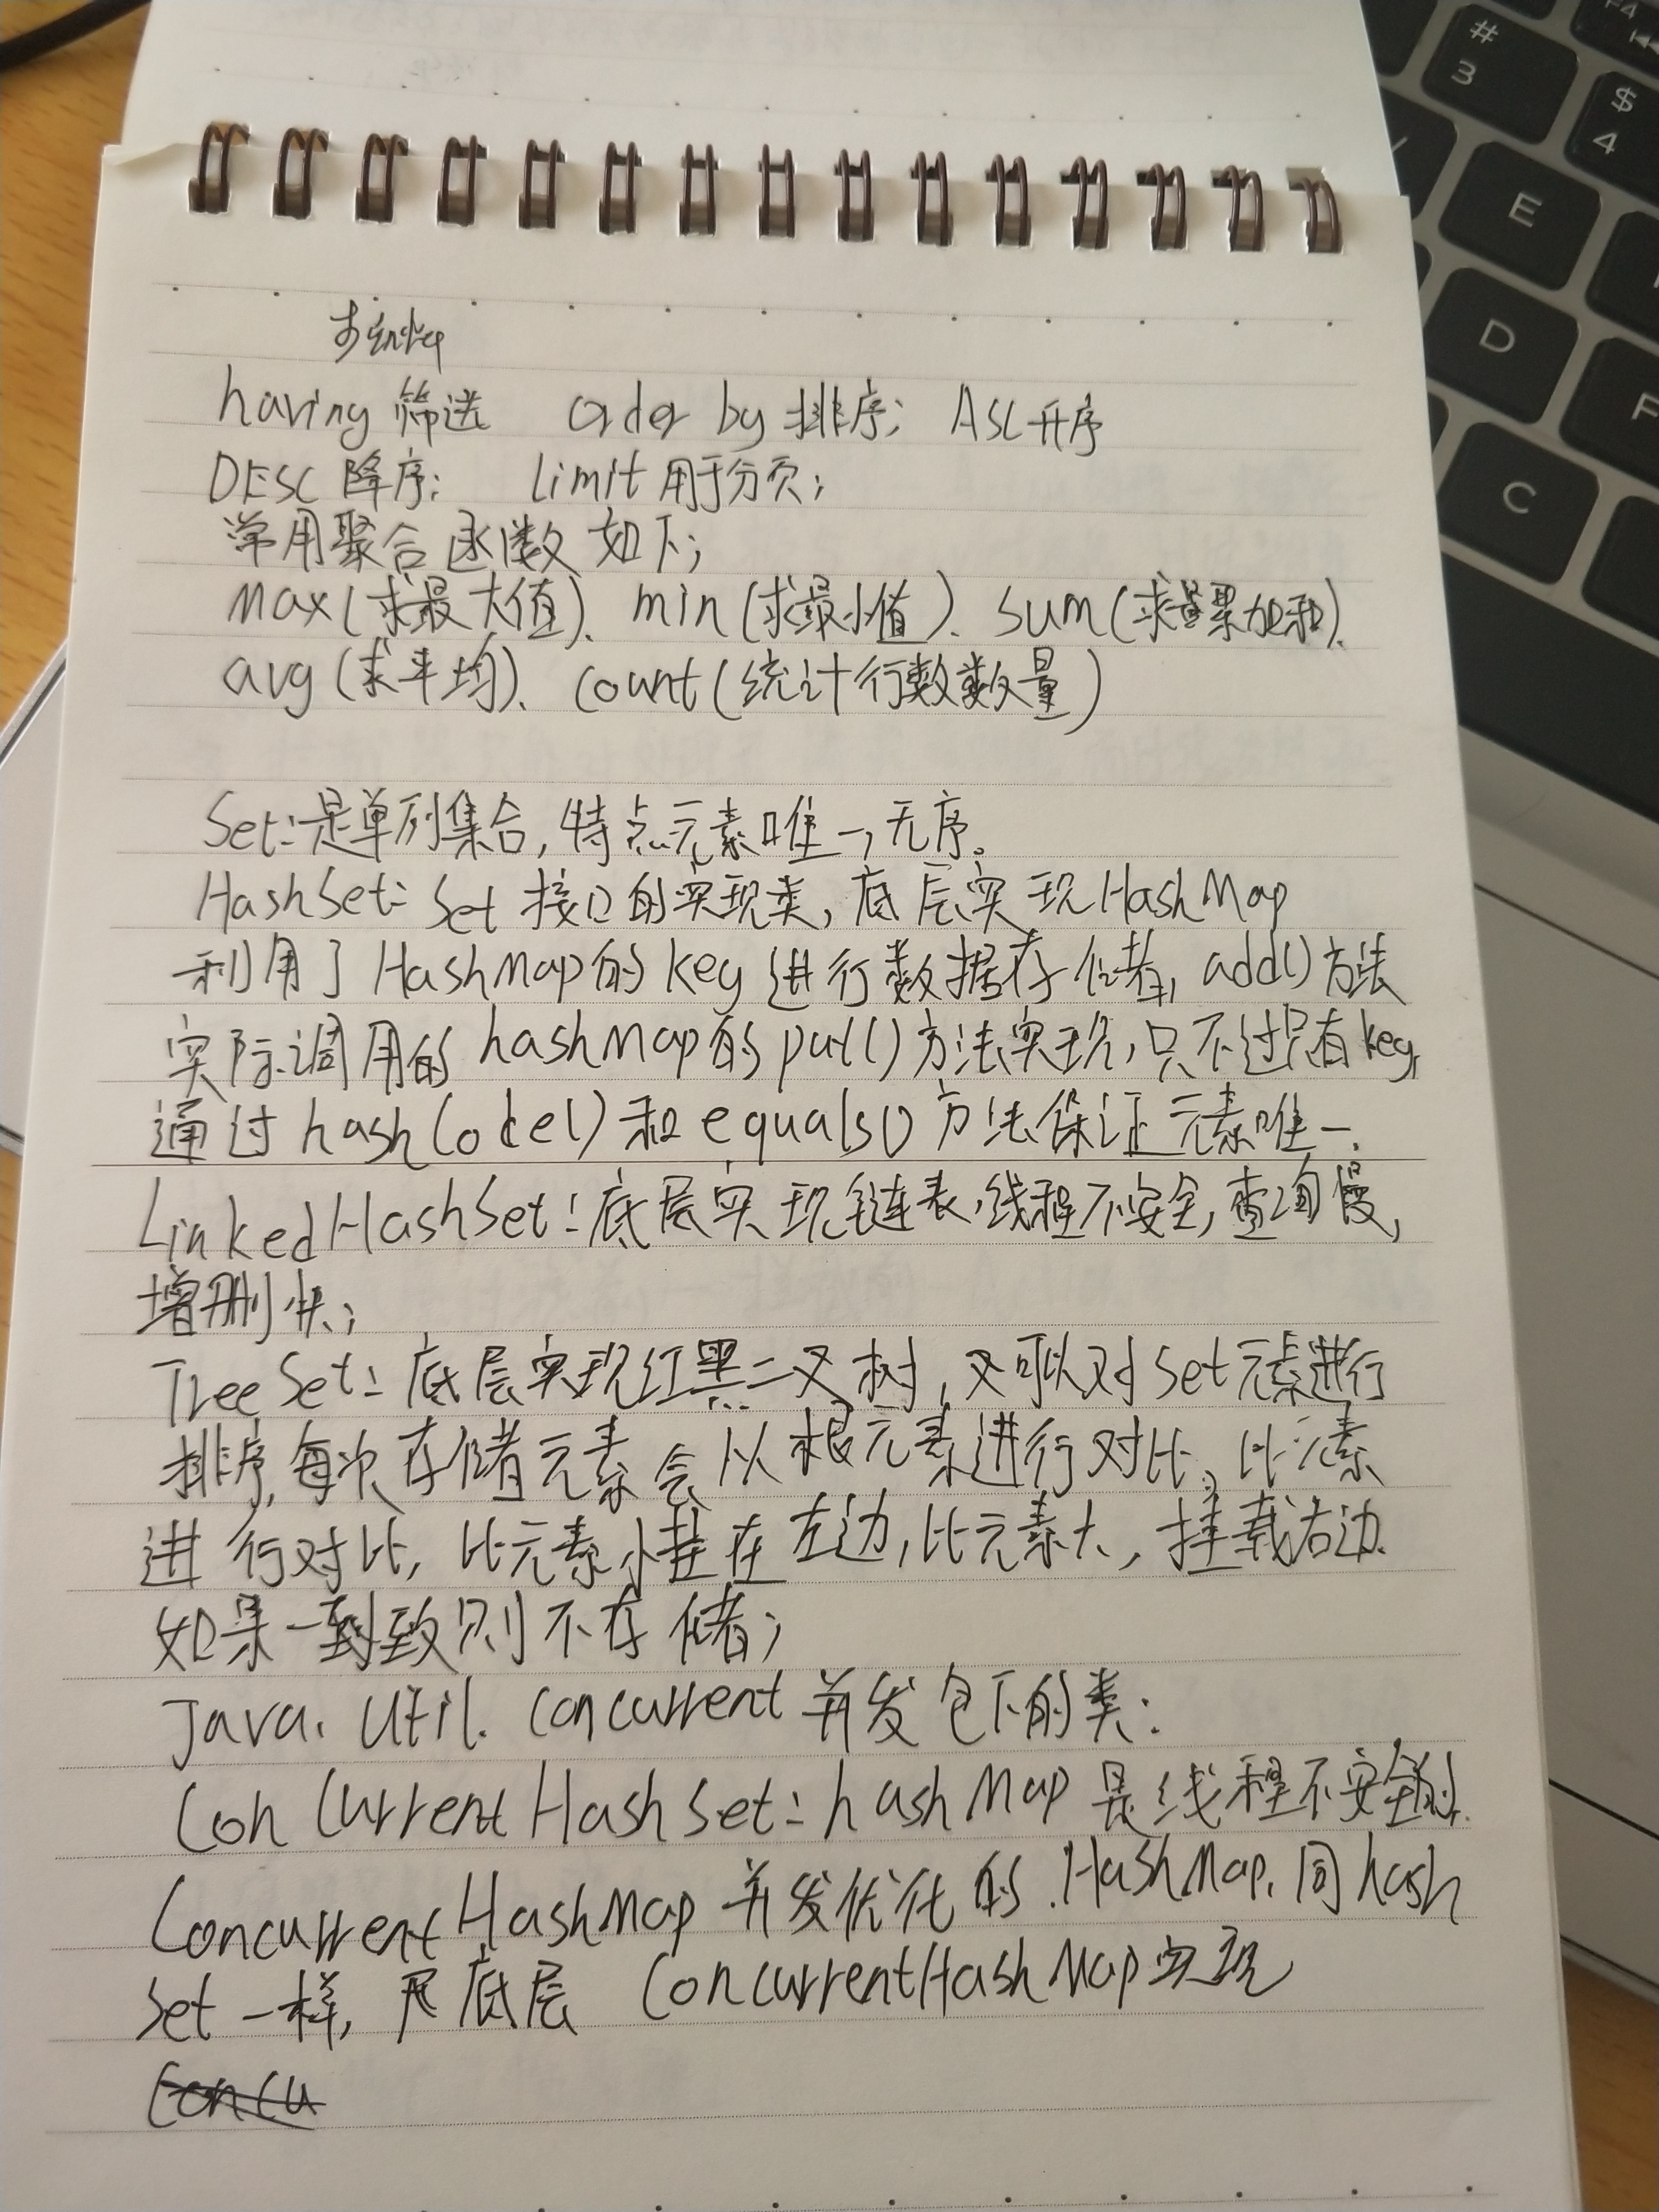 having 筛选 Order by 排序; ASC 升序
DESC 降序; limit 用于分页;
常用聚合函数如下;
max(求最大值)、min(求最小值)、sum(求累加和)、
avg(求平均)、count(统计行数数量)
Set:是单列集合,特点元素唯一,无序。
HashSet: Set 接口的实现类,底层实现HashMap
利用了HashMap的key进行数据存储,add()方法
实际调用的hashMap的put()方法实现,只不过只有key,
通过hashCode()和equals()方法保证元素唯一.
LinkedHashSet:底层实现链表,线程不安全,查询慢,
增删快;
TreeSet:底层实现红黑二叉树,又可以对set元素进行
排序,每次存储元素会从根元素进行对比,比元素
进行对比,比元素小挂在左边,比元素大,挂载右边.
如果一致则不存储;
Java.Util.Concurrent并发包下的类:
ConCurrentHashSet:hashMap是线程不安全的.
ConcurrentHashMap并发优化的.HashMap.同hash
Set一样,底层 ConcurrentHashMap实现
Concu
# 3
$ 4
F4
E
D
F
C